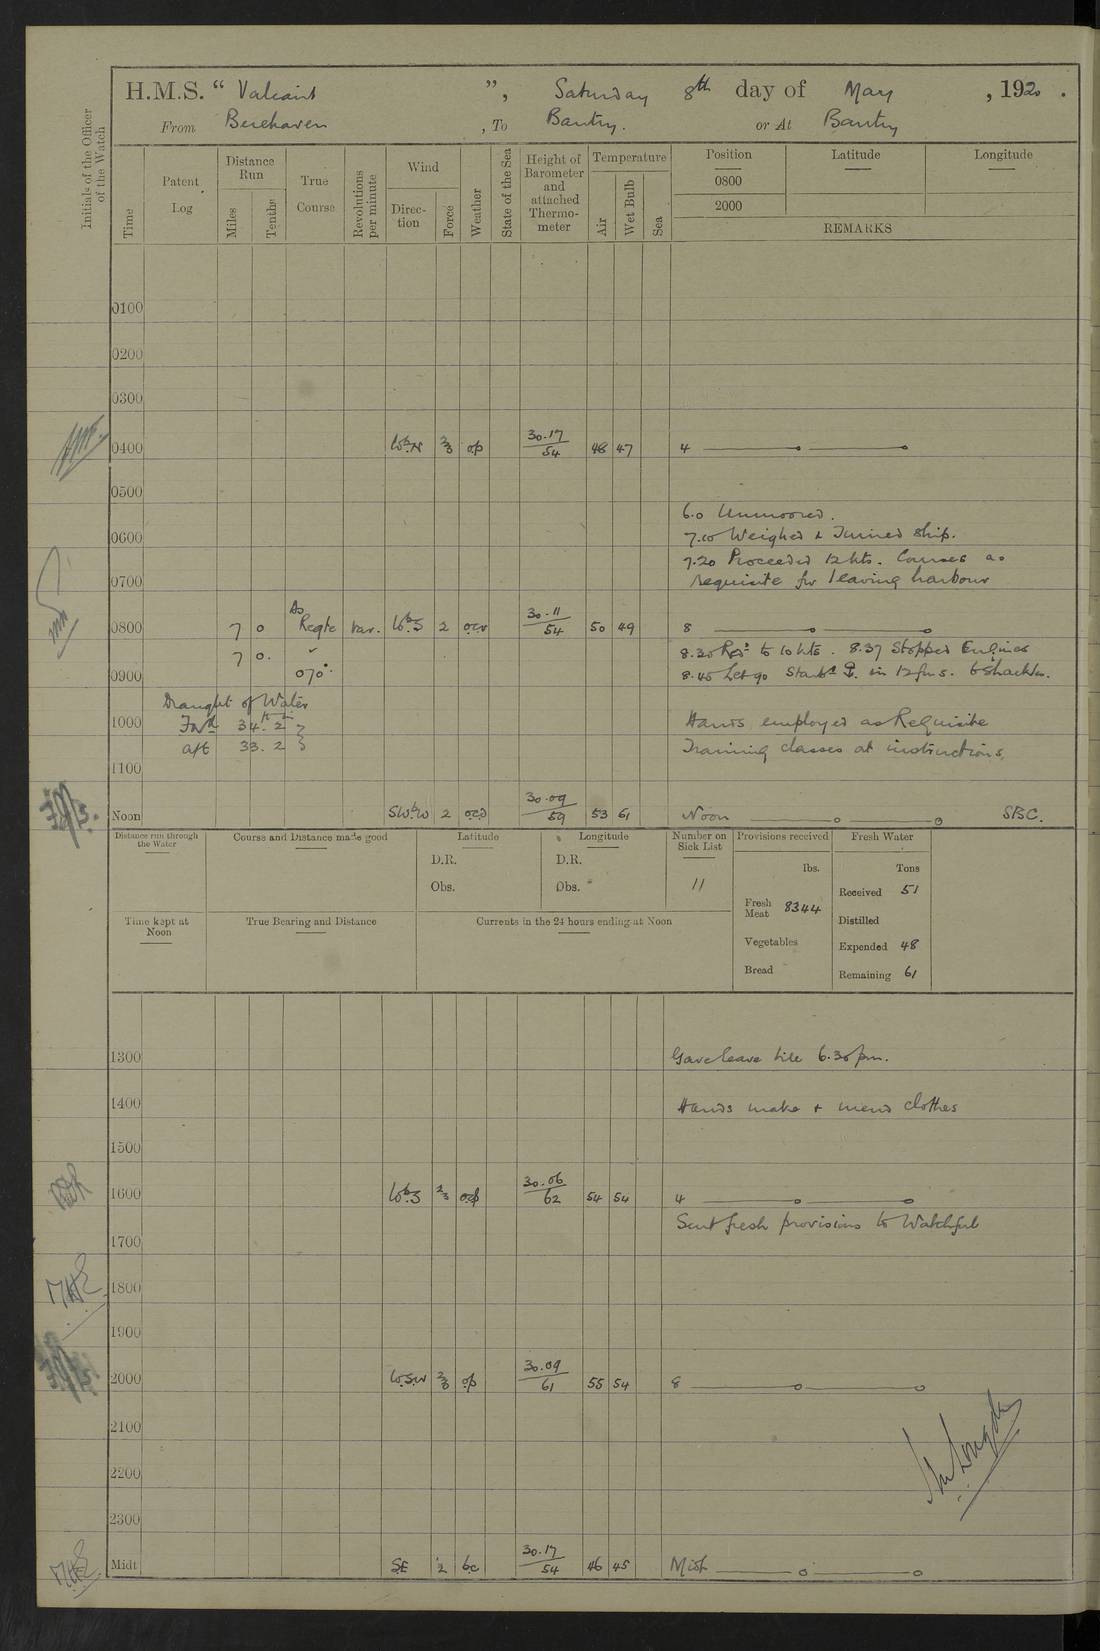 H.M.S. "Valiant", Saturday 8th day of May, 1920.
From Berehaven, To Bantry. or At Bantry
Initials of the Officer of the Watch
Time
Patent Log
Distance Run
Miles
Tenths
True Course
Revolutions per minute
Wind
Direction
Force
Weather
State of the Sea
Height of Barometer and attached Thermometer
Temperature
Air
Wet Bulb
Sea
Position
Latitude
Longitude
0800
2000
REMARKS
0100
0200
0300
0400 WbN 2/3 op 30.17/54 48 47 4
0500
6.0 Unmoored.
0600
7.10 Weighed & Turned Ship.
7.20 Proceeded 12 kts. Courses as
requisite for leaving harbour
0700
0800 7 0 As Reqte Var. WbS 2 30.11/54 50 49 8
7 0. " 8.30 Red: to 10 kts. 8.37 Stopped Engines
0900 070° 8.45 Let go Starbd in 12 fms. 6 shackles.
Draught of Water
1000 Fwd 34. 2 Hands employed as Requisite
aft 33. 2 Training classes at instructions.
1100
Noon SWbW 2 30.09/59 53 61 Noon SBC.
Distance run through the Water
Course and Distance made good
Latitude
D.R.
Obs.
Longitude
D.R.
Obs.
Number on Sick List
11
Provisions received
lbs.
Fresh Meat 8344
Vegetables
Bread
Fresh Water
Tons
Received 51
Distilled
Expended 48
Remaining 61
Time kept at Noon
True Bearing and Distance
Currents in the 24 hours ending at Noon
1300 Gave leave till 6.30 pm.
1400 Hands make & mend clothes
1500
1600 WbS 2/3 30.06/62 54 54 4
Sent fresh provisions to Watchful
1700
1800
1900
2000 WSW 2/3 op 30.09/61 55 54 8
2100
2200
2300
Midt SE 2 bc 30.17/54 46 45 Midt